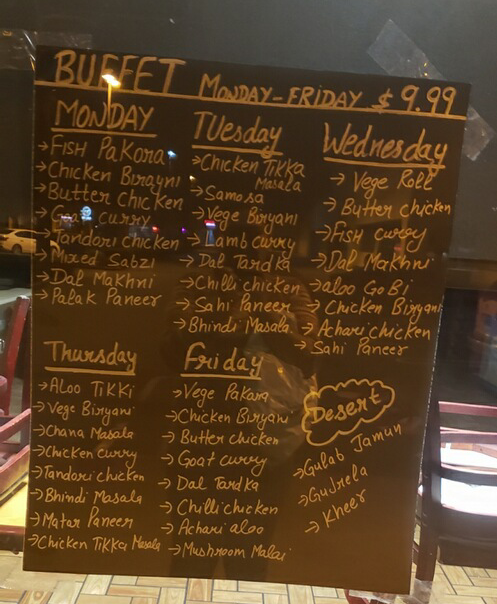 BUFFET MONDAY-FRIDAY $9.99
MONDAY
→ FISH PaKora
→ Chicken Birayni
→ Butter Chicken
→ Goat curry
→ Tandori chicken
→ Mixed Sabzi
→ Dal Makhni
→ Palak Paneer
TUesday
→ Chicken TiKKa
Masala
→ Samosa
→ Vege Biryani
→ Lamb curry
→ Dal Tardka
→ Chilli chicken
→ Sahi Paneer
→ Bhindi Masala
Wednesday
→ Vege Roll
→ Butter chicken
→ FisH curry
→ Dal MaKhni
→ aloo GoBi
→ Chicken Biryani
→ Achari chicken
→ Sahi Paneer
Thursday
→ ALoo TiKKi
→ Vege Biryani
→ Chana Masala
→ Chicken curry
→ Tandori chicken
→ Bhindi Masala
→ Matar Paneer
→ Chicken TiKKa Masala
Friday
→ Vege Pakora
→ Chicken Biryani
→ Butter chicken
→ Goat curry
→ Dal Tardka
→ Chilli chicken
→ Achari aloo
→ Mushroom Malai
Desert
→ Gulab Jamun
→ Gudrela
→ Kheer